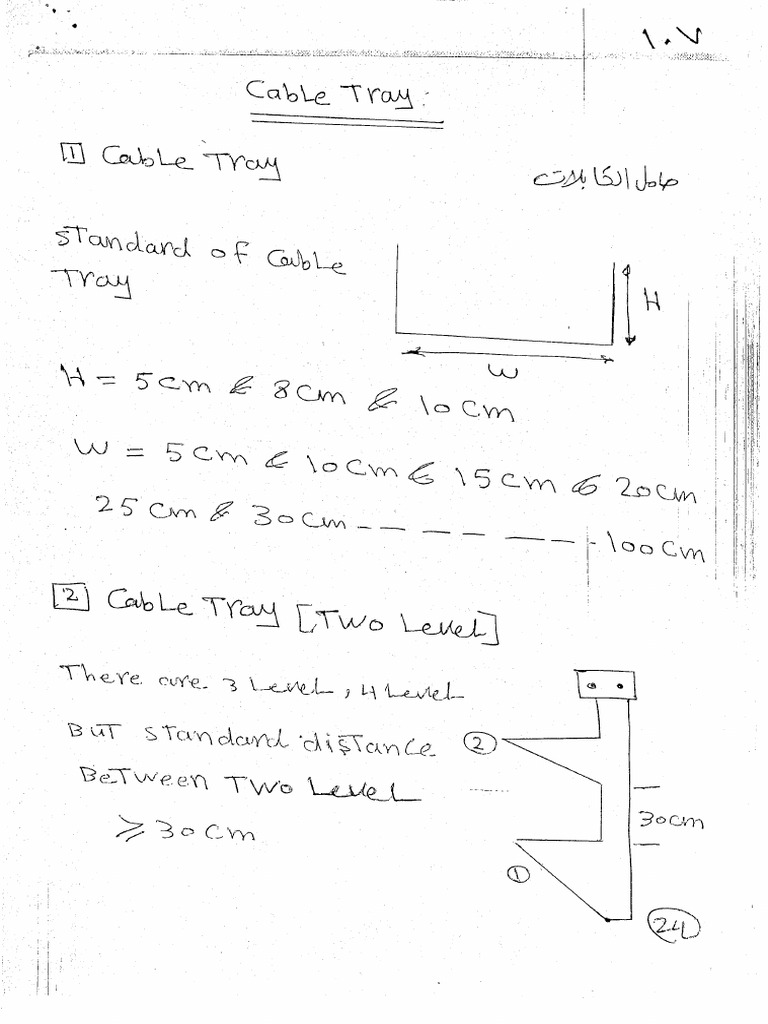 ١٠٧
Cable Tray:
1 Cable Tray
حامل الكابلات
Standard of Cable
Tray
H
W
H = 5cm & 8cm & 10cm
W = 5cm & 10cm & 15cm & 20cm
25cm & 30cm -- -- -- --- 100cm
2 Cable Tray [Two Level]
There are 3 Level, 4 Level
But standard distance
Between Two Level
≥ 30cm
2
30cm
1
24